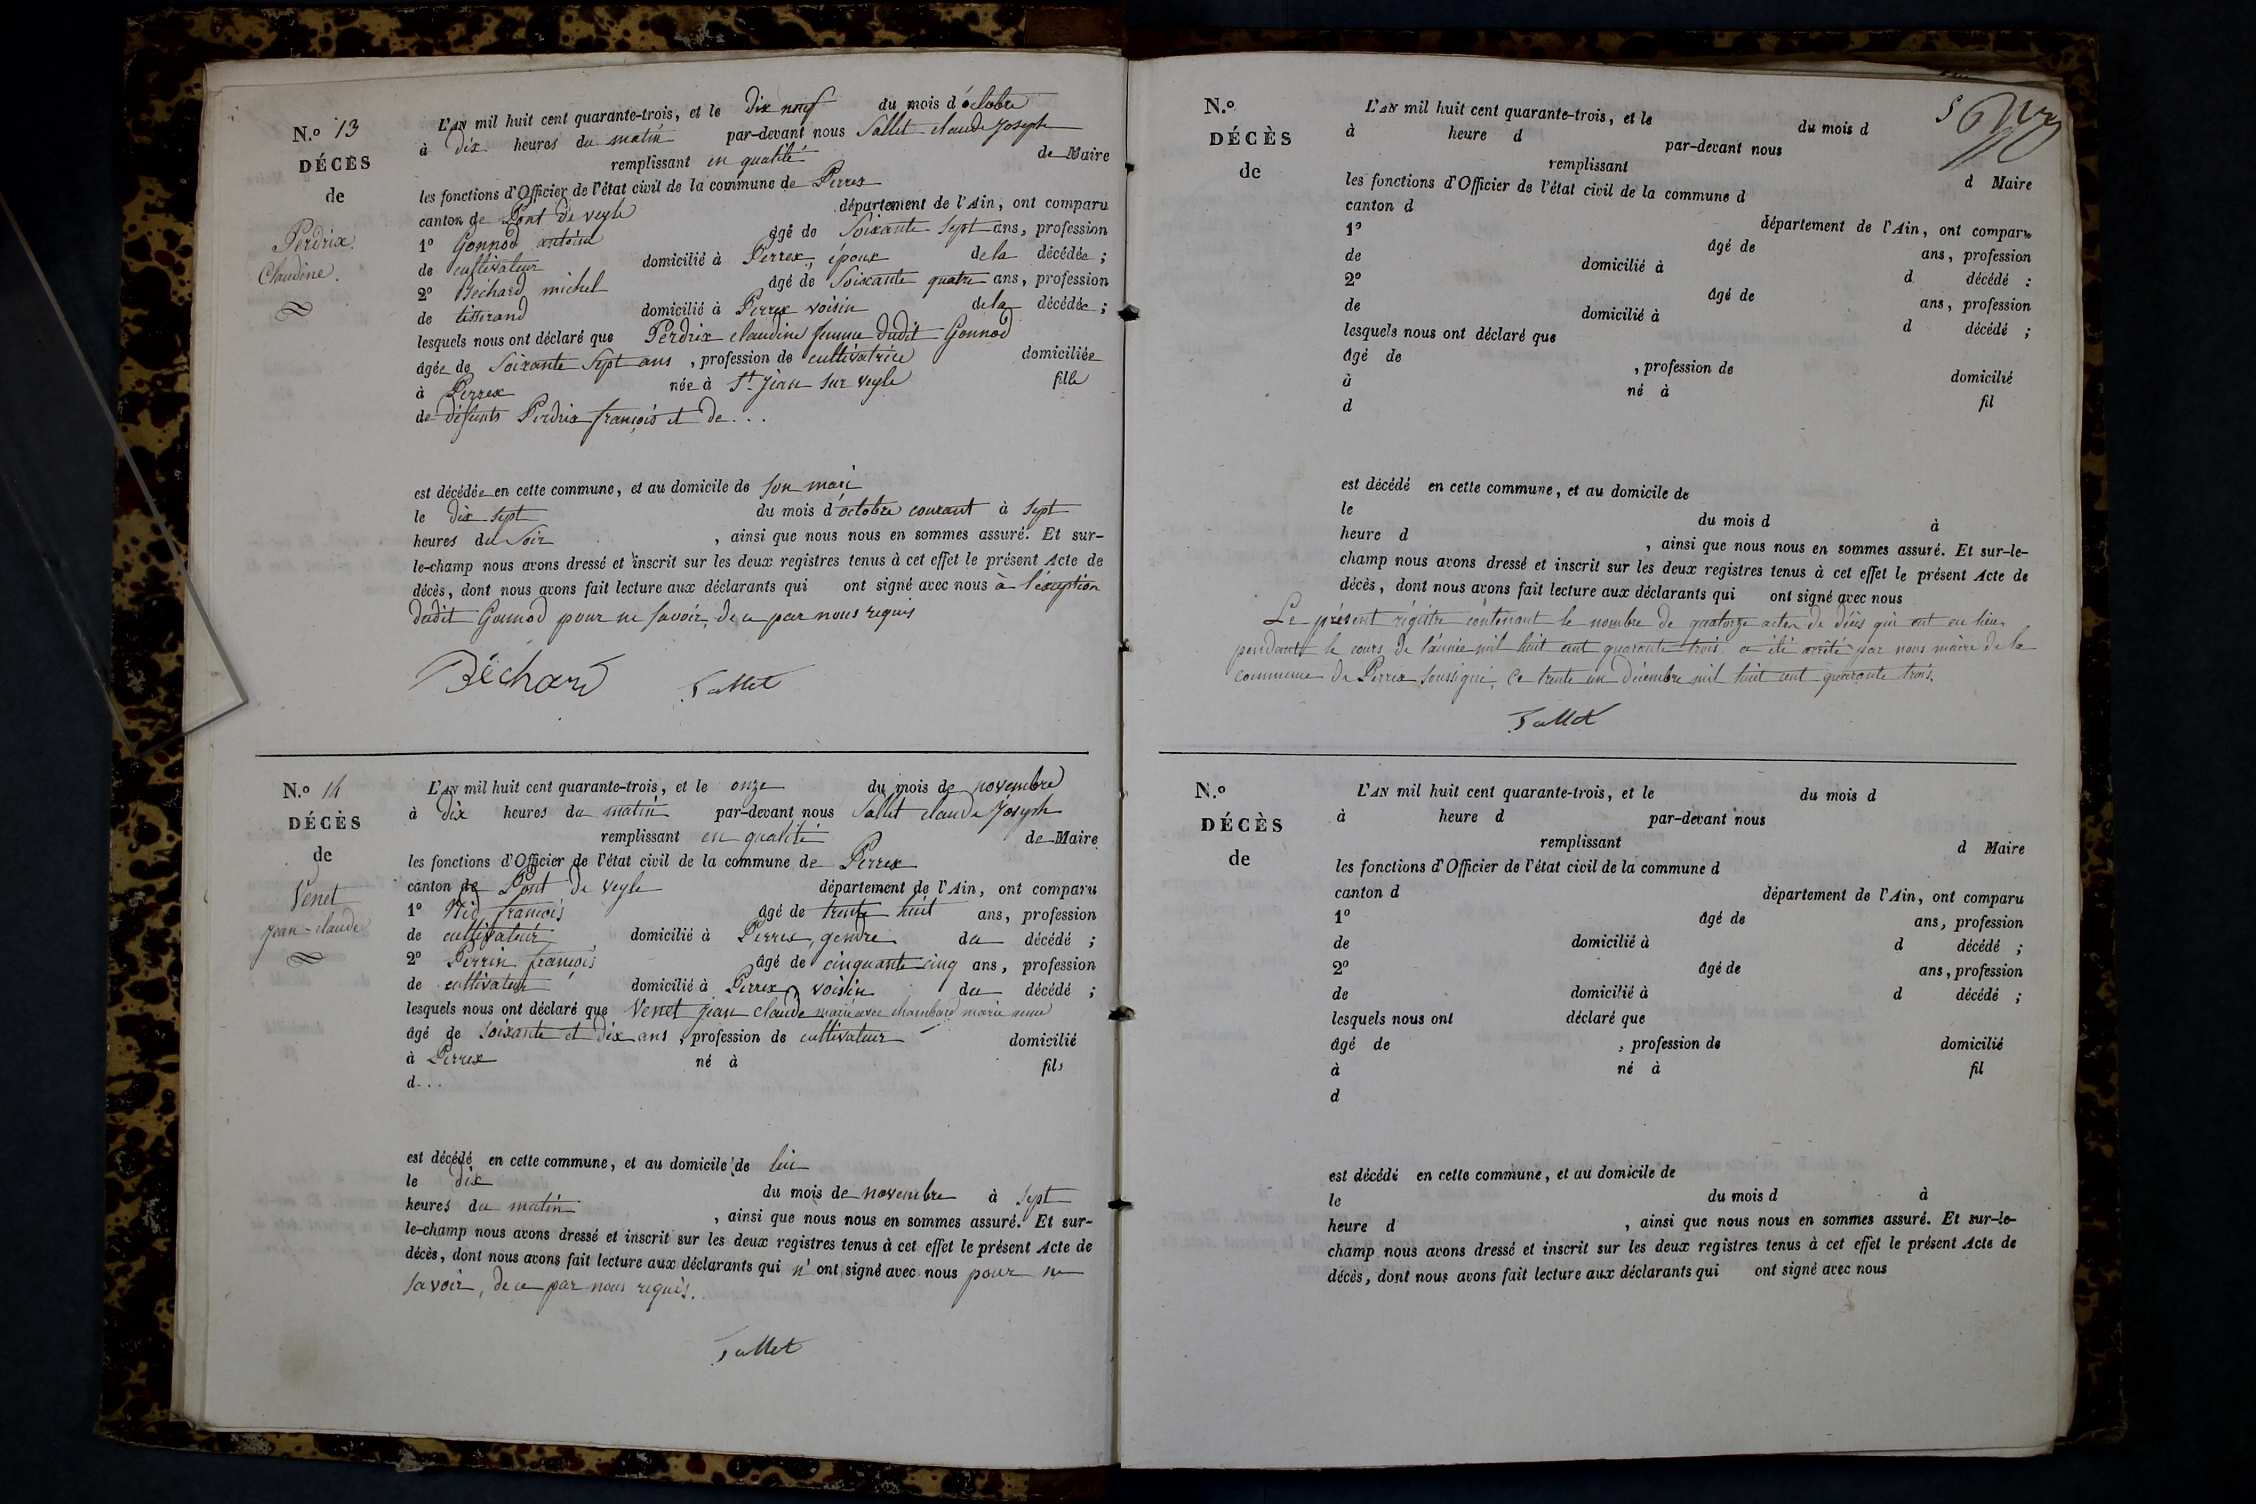 N.o 13
DÉCÈS
de
Perdrix
Claudine.
L'AN mil huit cent quarante-trois, et le dix neuf du mois d'octobre
à dix heures du matin par-devant nous Sallet claude Joseph
remplissant en qualité de Maire
les fonctions d'Officier de l'état civil de la commune de Perrex
canton de Pont de veyle département de l'Ain, ont comparu
1o Gonnod antoine âgé de Soixante Sept ans, profession
de cultivateur domicilié à Perrex, époux de la décédée ;
2o Bechard michel âgé de Soixante quatre ans, profession
de tisserand domicilié à Perrex voisin de la décédée ;
lesquels nous ont déclaré que Perdrix claudine femme dudit Gonnod
âgée de Soixante Sept ans , profession de cultivatrice domiciliée
à Perrex née à St Jean sur veyle fille
de défunts Perdrix françois et de . . .
est décédée en cette commune, et au domicile de son mari
le dix sept du mois d'octobre courant à sept
heures du Soir , ainsi que nous nous en sommes assuré. Et sur-
le-champ nous avons dressé et inscrit sur les deux registres tenus à cet effet le présent Acte de
décès, dont nous avons fait lecture aux déclarants qui ont signé avec nous à l'éxception
dudit Gonnod pour ne savoir, de ce par nous requis
Béchard Sallet
N.o 14
DÉCÈS
de
Venet
Jean-claude
L'AN mil huit cent quarante-trois, et le onze du mois de novembre
à dix heures du matin par-devant nous Sallet claude Joseph
remplissant en qualité de Maire
les fonctions d'Officier de l'état civil de la commune de Perrex
canton de Pont de veyle département de l'Ain, ont comparu
1o françois âgé de trente huit ans, profession
de cultivateur domicilié à Perrex, gendre du décédé ;
2o Perrin françois âgé de cinquante cinq ans, profession
de cultivateur domicilié à Perrex, voisin du décédé ;
lesquels nous ont déclaré que Venet jean claude marié avec chambard marie anne
âgé de soixante et dix ans , profession de cultivateur domicilié
à Perrex né à fils
d . . .
est décédé en cette commune, et au domicile de lui
le dix du mois de novembre à sept
heures du matin , ainsi que nous nous en sommes assuré. Et sur-
le-champ nous avons dressé et inscrit sur les deux registres tenus à cet effet le présent Acte de
décès, dont nous avons fait lecture aux déclarants qui n'ont signé avec nous pour ne
savoir, de ce par nous requis.
Sallet
N.o
DÉCÈS
de
L'AN mil huit cent quarante-trois, et le du mois d
à heure d par-devant nous
remplissant d Maire
les fonctions d'Officier de l'état civil de la commune d
canton d département de l'Ain, ont comparu
1o âgé de ans, profession
de domicilié à d décédé :
2o âgé de ans, profession
de domicilié à d décédé ;
lesquels nous ont déclaré que
âgé de , profession de domicilié
à né à fil
d
est décédé en cette commune, et au domicile de
le du mois d à
heure d , ainsi que nous nous en sommes assuré. Et sur-le-
champ nous avons dressé et inscrit sur les deux registres tenus à cet effet le présent Acte de
décès, dont nous avons fait lecture aux déclarants qui ont signé avec nous
Le présent régistre contenant le nombre de quatorze actes de décès qui ont eu lieu
pendant le cours de l'année mil huit cent quarante trois a été arrêté par nous maire de la
commune de Perrex soussigné, ce trente un décembre mil huit cent quarante trois.
Sallet
N.o
DÉCÈS
de
L'AN mil huit cent quarante-trois, et le du mois d
à heure d par-devant nous
remplissant d Maire
les fonctions d'Officier de l'état civil de la commune d
canton d département de l'Ain, ont comparu
1o âgé de ans, profession
de domicilié à d décédé ;
2o âgé de ans, profession
de domicilié à d décédé ;
lesquels nous ont déclaré que
âgé de , profession de domicilié
à né à fil
d
est décédé en cette commune, et au domicile de
le du mois d à
heure d , ainsi que nous nous en sommes assuré. Et sur-le-
champ nous avons dressé et inscrit sur les deux registres tenus à cet effet le présent Acte de
décès, dont nous avons fait lecture aux déclarants qui ont signé avec nous